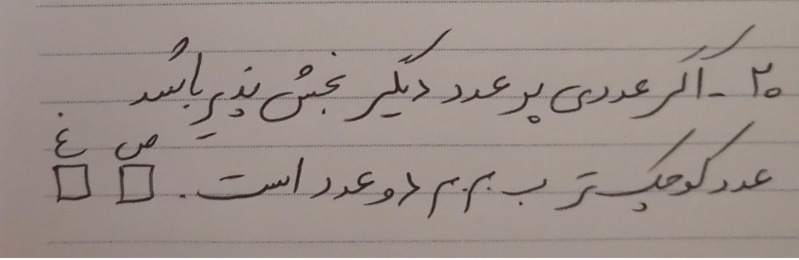 ۲۰ - اگر عددی بر عدد دیگر بخش پذیر باشد
عدد کوچک تر ب.م.م دو عدد است. ص □ غ □